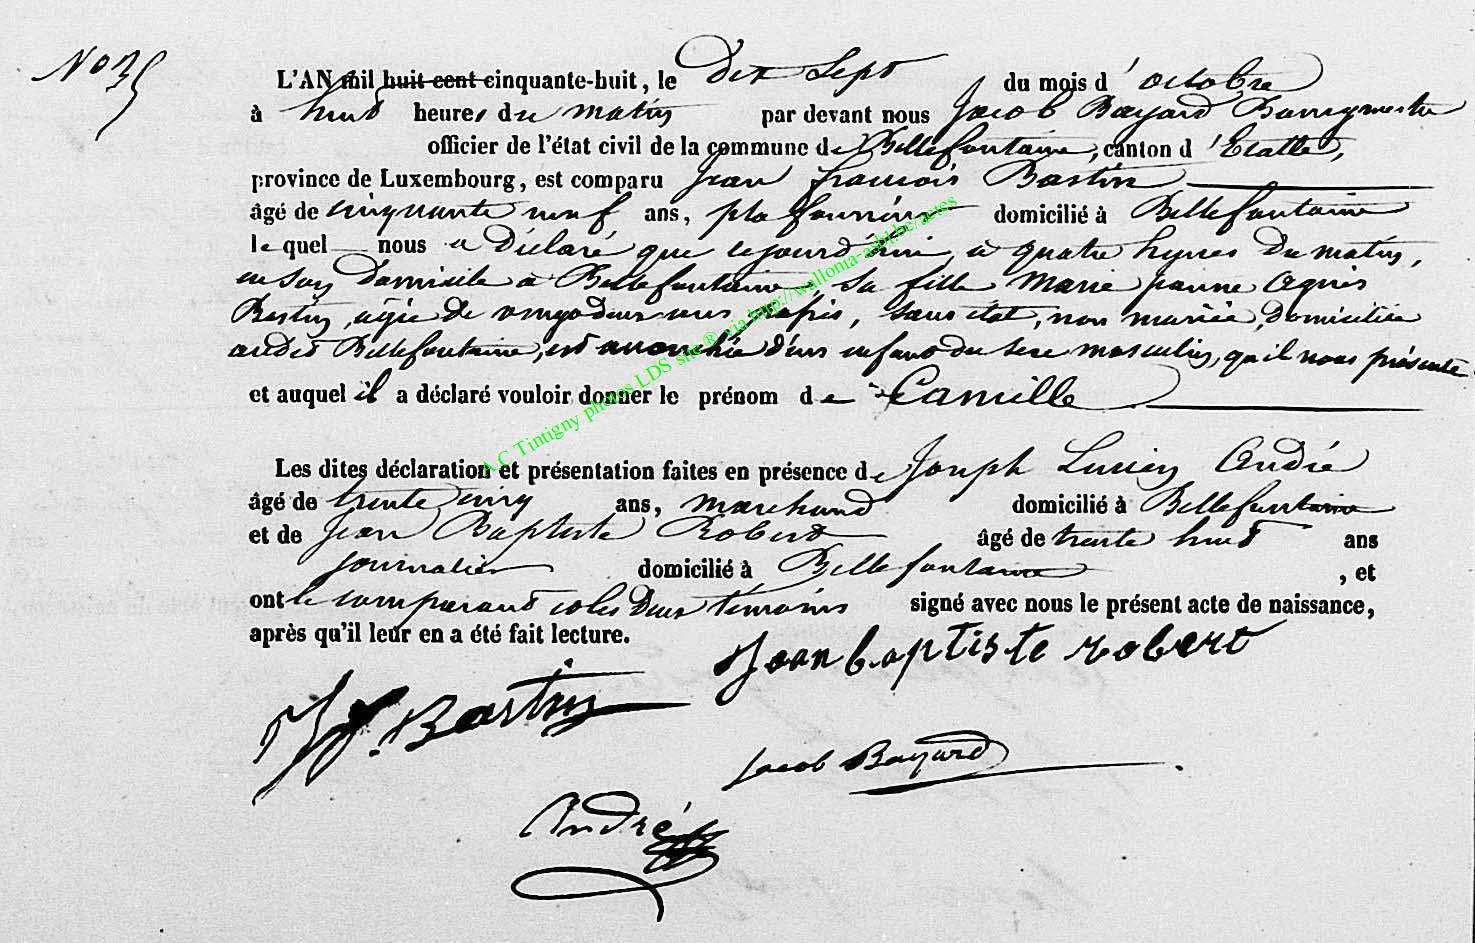 No 35
L'AN mil huit cent cinquante-huit, le dix Sept du mois d'octobre
à huit heures du matin par devant nous Jacob Bayard Bourgmestre
officier de l'état civil de la commune de Bellefontaine, canton d'Etalle,
province de Luxembourg, est comparu Jean françois Bastin
âgé de cinquante neuf ans, domicilié à Bellefontaine
le quel nous a Déclaré que cejourd'hui, à quatre heures du matin,
en son Domicile à Bellefontaine, sa fille Marie jeanne Agnès
Bastin, agée de vingt deux ans, sans état, non mariée, Domiciliée
audit Bellefontaine, est accouchée d'un enfant du sexe masculin, qu'il nous présente
et auquel il a déclaré vouloir donner le prénom de Camille
Les dites déclaration et présentation faites en présence de Joseph Lucien André
âgé de trente cinq ans, marchand domicilié à Bellefontaine
et de Jean Baptiste Robert âgé de trente huit ans
journalier domicilié à Bellefontaine, et
ont le comparant et les Deux témoins signé avec nous le présent acte de naissance,
après qu'il leur en a été fait lecture.
Jean baptiste robert
J f. Bastin
Jacob Bayard
André
A.C Tintigny photos LDS site ® via http://wallonia-asbl.be/actes